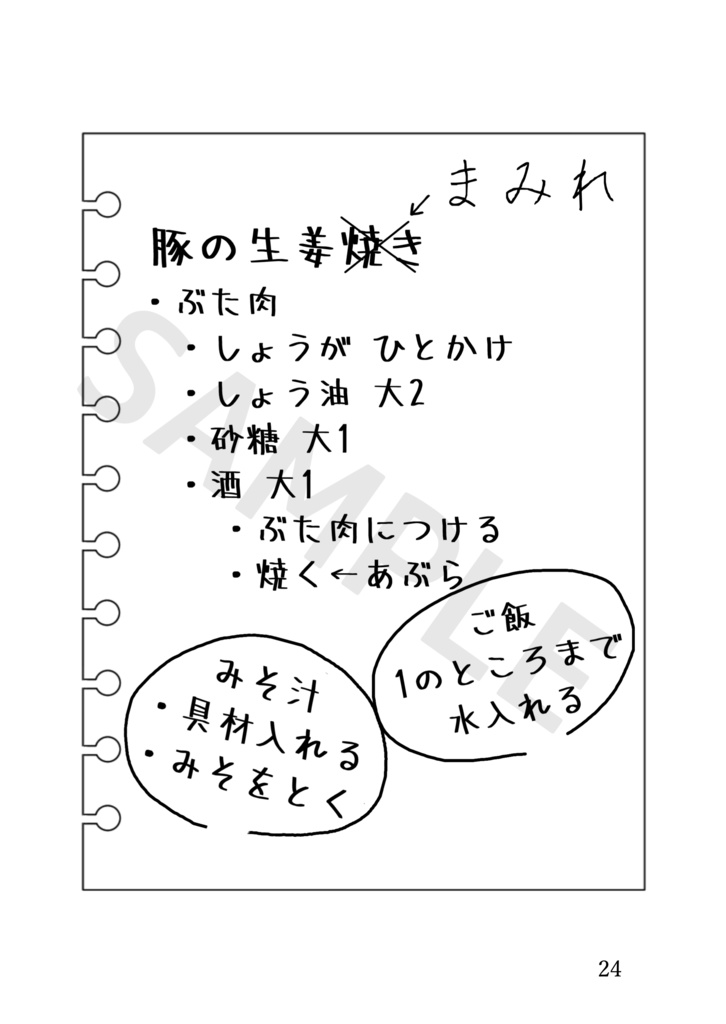 まみれ
豚の生姜焼き
・ぶた肉
・しょうが ひとかけ
・しょう油 大2
・砂糖 大1
・酒 大1
・ぶた肉につける
・焼く←あぶら
ご飯
1のところまで
水入れる
みそ汁
・具材入れる
・みそをとく
SAMPLE
24